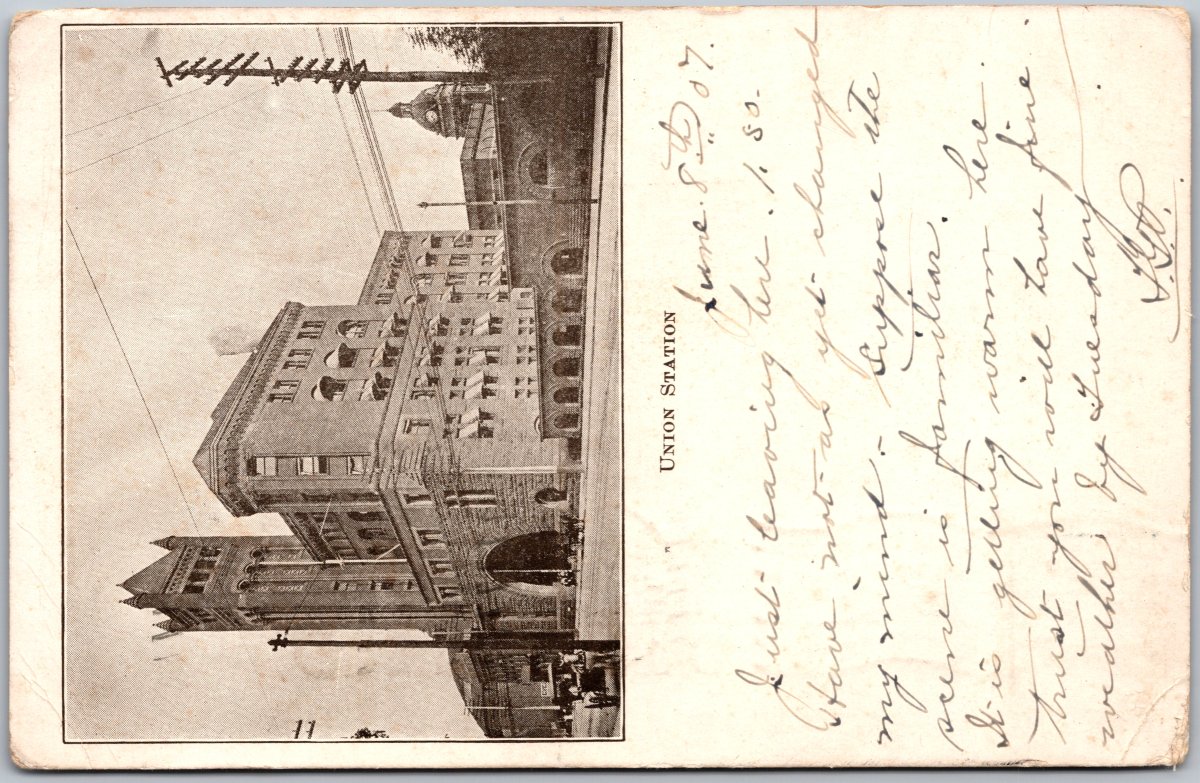 UNION STATION
June. 8th 07.
Just leaving here. 1.80.
Have not as yet changed
my mind. - Suppose the
scene is familiar.
It is getting warm here.
trust you will have fine
weather by Tuesday